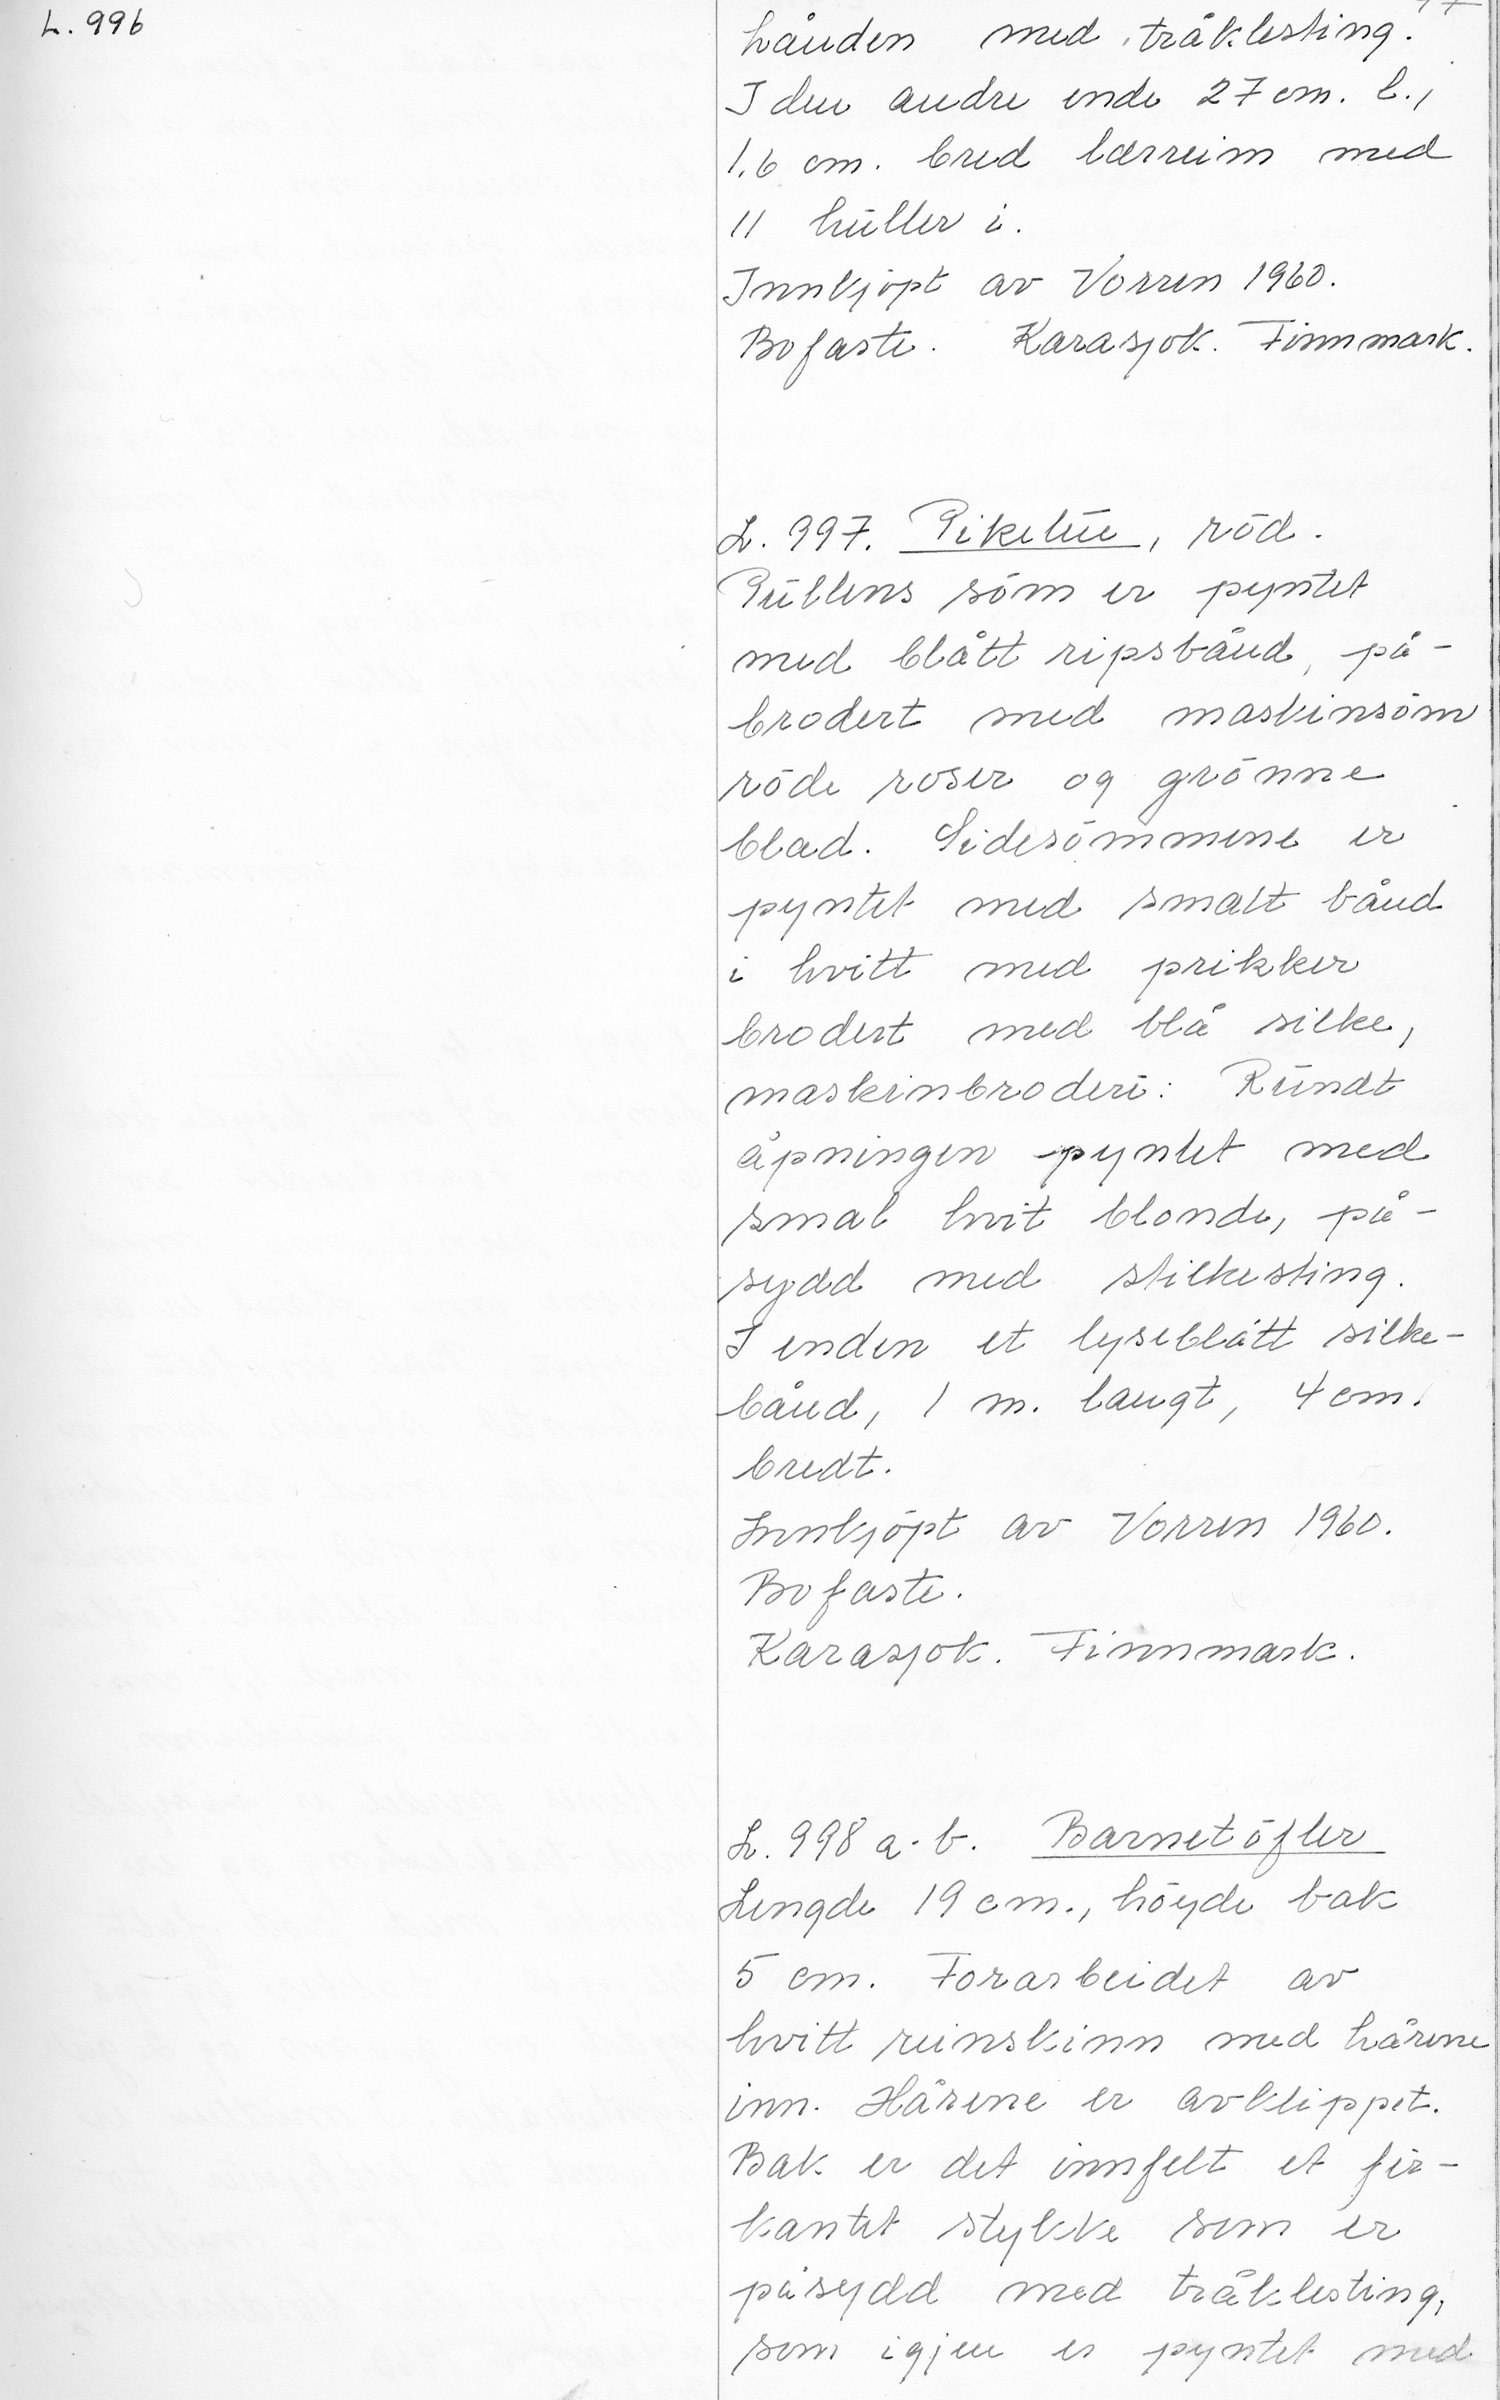 L. 996
bånden med tråklesting.
I den andre ende 27 cm. l.,
1.6 cm. bred lærreim med
11 huller i.
Innkjöpt av Vorren 1960.
Bofaste. Karasjok. Finnmark.
L. 997. Pikelue, röd.
Pullens söm er pyntet
med blått ripsbånd, på-
brodert med maskinsöm
röde roser og grönne
blad. Sidesömmene er
pyntet med smalt bånd
i hvitt med prikker
brodert med blå silke,
maskinbroderi: Rundt
åpningen pyntet med
smal hvit blonde, på-
sydd med stilkesting.
I enden et lyseblått silke-
bånd, 1 m. langt, 4 cm.
bredt.
Innkjöpt av Vorren 1960.
Bofaste.
Karasjok. Finnmark.
L. 998 a-b. Barnetöfler
Lengde 19 cm., höyde bak
5 cm. Forarbeidet av
hvitt reinskinn med hårene
inn. Hårene er avklippet.
Bak er det innfelt et fir-
kantet stykke som er
påsydd med tråklesting,
som igjen er pyntet med